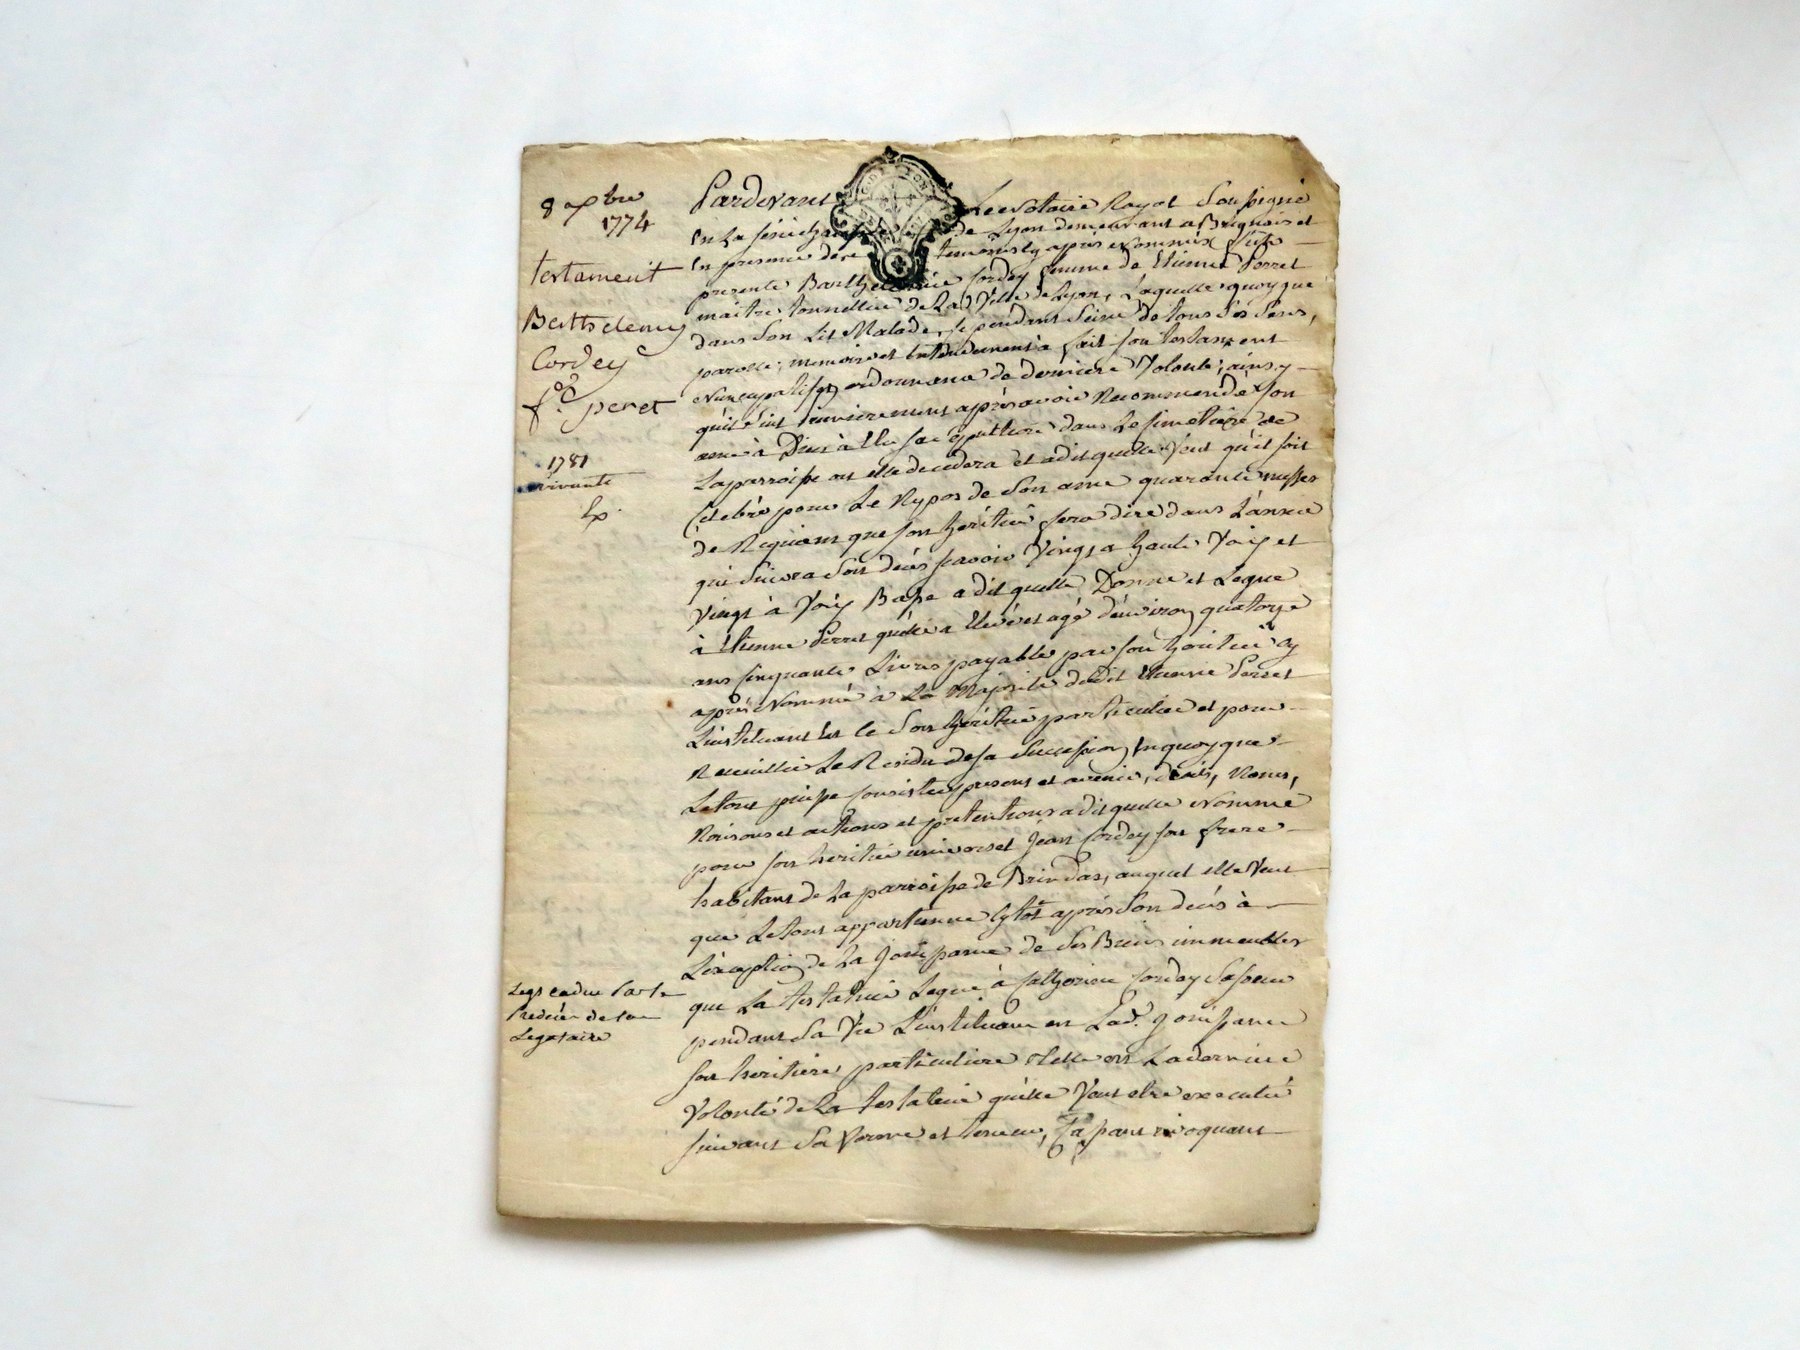 8 xbre
1774
testament
Berthelemy
Cordey
f.e peret
1781
vivante
Legs caduc par le
predécès de la
Legataire
Pardevant Le Notaire Royal Soussigné
en La sénéchaussée de Lyon demeurant a Brignais et
en presence des temoins cy après Nommés fut
presente Barthelemie Cordey femme de Etienne Perret
maitre tonnellier de La Ville de Lyon, Laquelle quoyque
dans Son Lit Malade, Cependant Seine de tous Ses Sens,
parolle, memoire et Entendement à fait son testament
Nuncupatif et ordonnance de derniere Volonté, ainsy
qu'il suit premierement après avoir Recommendé Son
ame à Dieu à Elu sa sepulture dans Le simetiere de
La parroisse ou elle decedera et a dit quelle Veut qu'il soit
Celebré pour Le Repos de Son ame quarante messes
de Requiem que son heritier fera dire dans L'année
qui Suivra Son decés savoir Vingt a haute Voix et
Vingt à Voix Basse a dit quelle Donne et Legue
à Etienne Perret quelle a Elevé et agé d'environ quatorze
ans Cinquante Livres payable par son heritier cy
après Nommé à La Majorité dudit Etienne Perret
L'instituant en ce Son heritier particulier et pour
Recueillir Le Residu de sa Succession en quoy que
Le tout puisse Consister presens et avenir, droits, Noms,
Raisons et actions et pretentions a dit quelle Nomme
pour son heritier universel Jean Cordey son frere
habitant de La parroisse de Brindas, auquel elle Veut
que Le tout appartienne sytot après Son decés à
L'exception de La Jouissance de Ses Biens immeubles
que La testatrice Legue à Catherine Cordey Sa soeur
pendant Sa Vie L'instituant en Lad. Jouissance
son heritiere particuliere telle est La derniere
Volonté de La testatrice quelle Veut etre executée
suivant Sa forme et teneur, revoquant